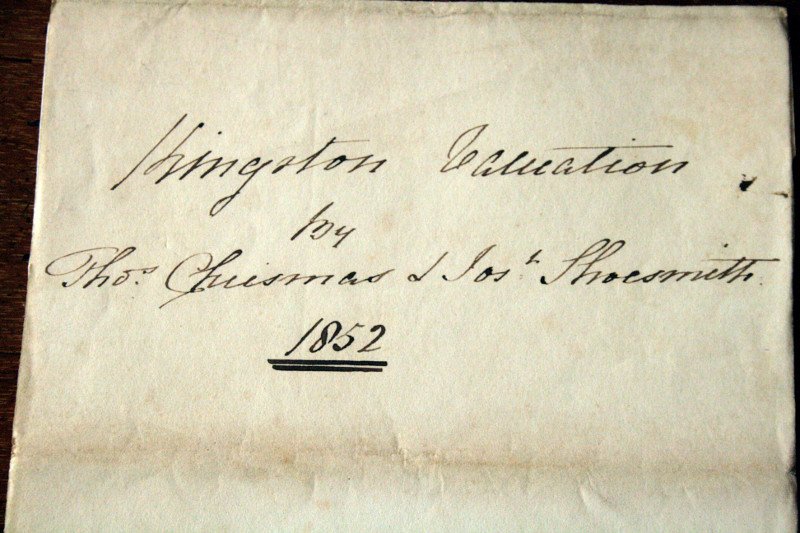 Kingston Valuation
by
Thos. Chrismas & Josh Shoesmith.
1852